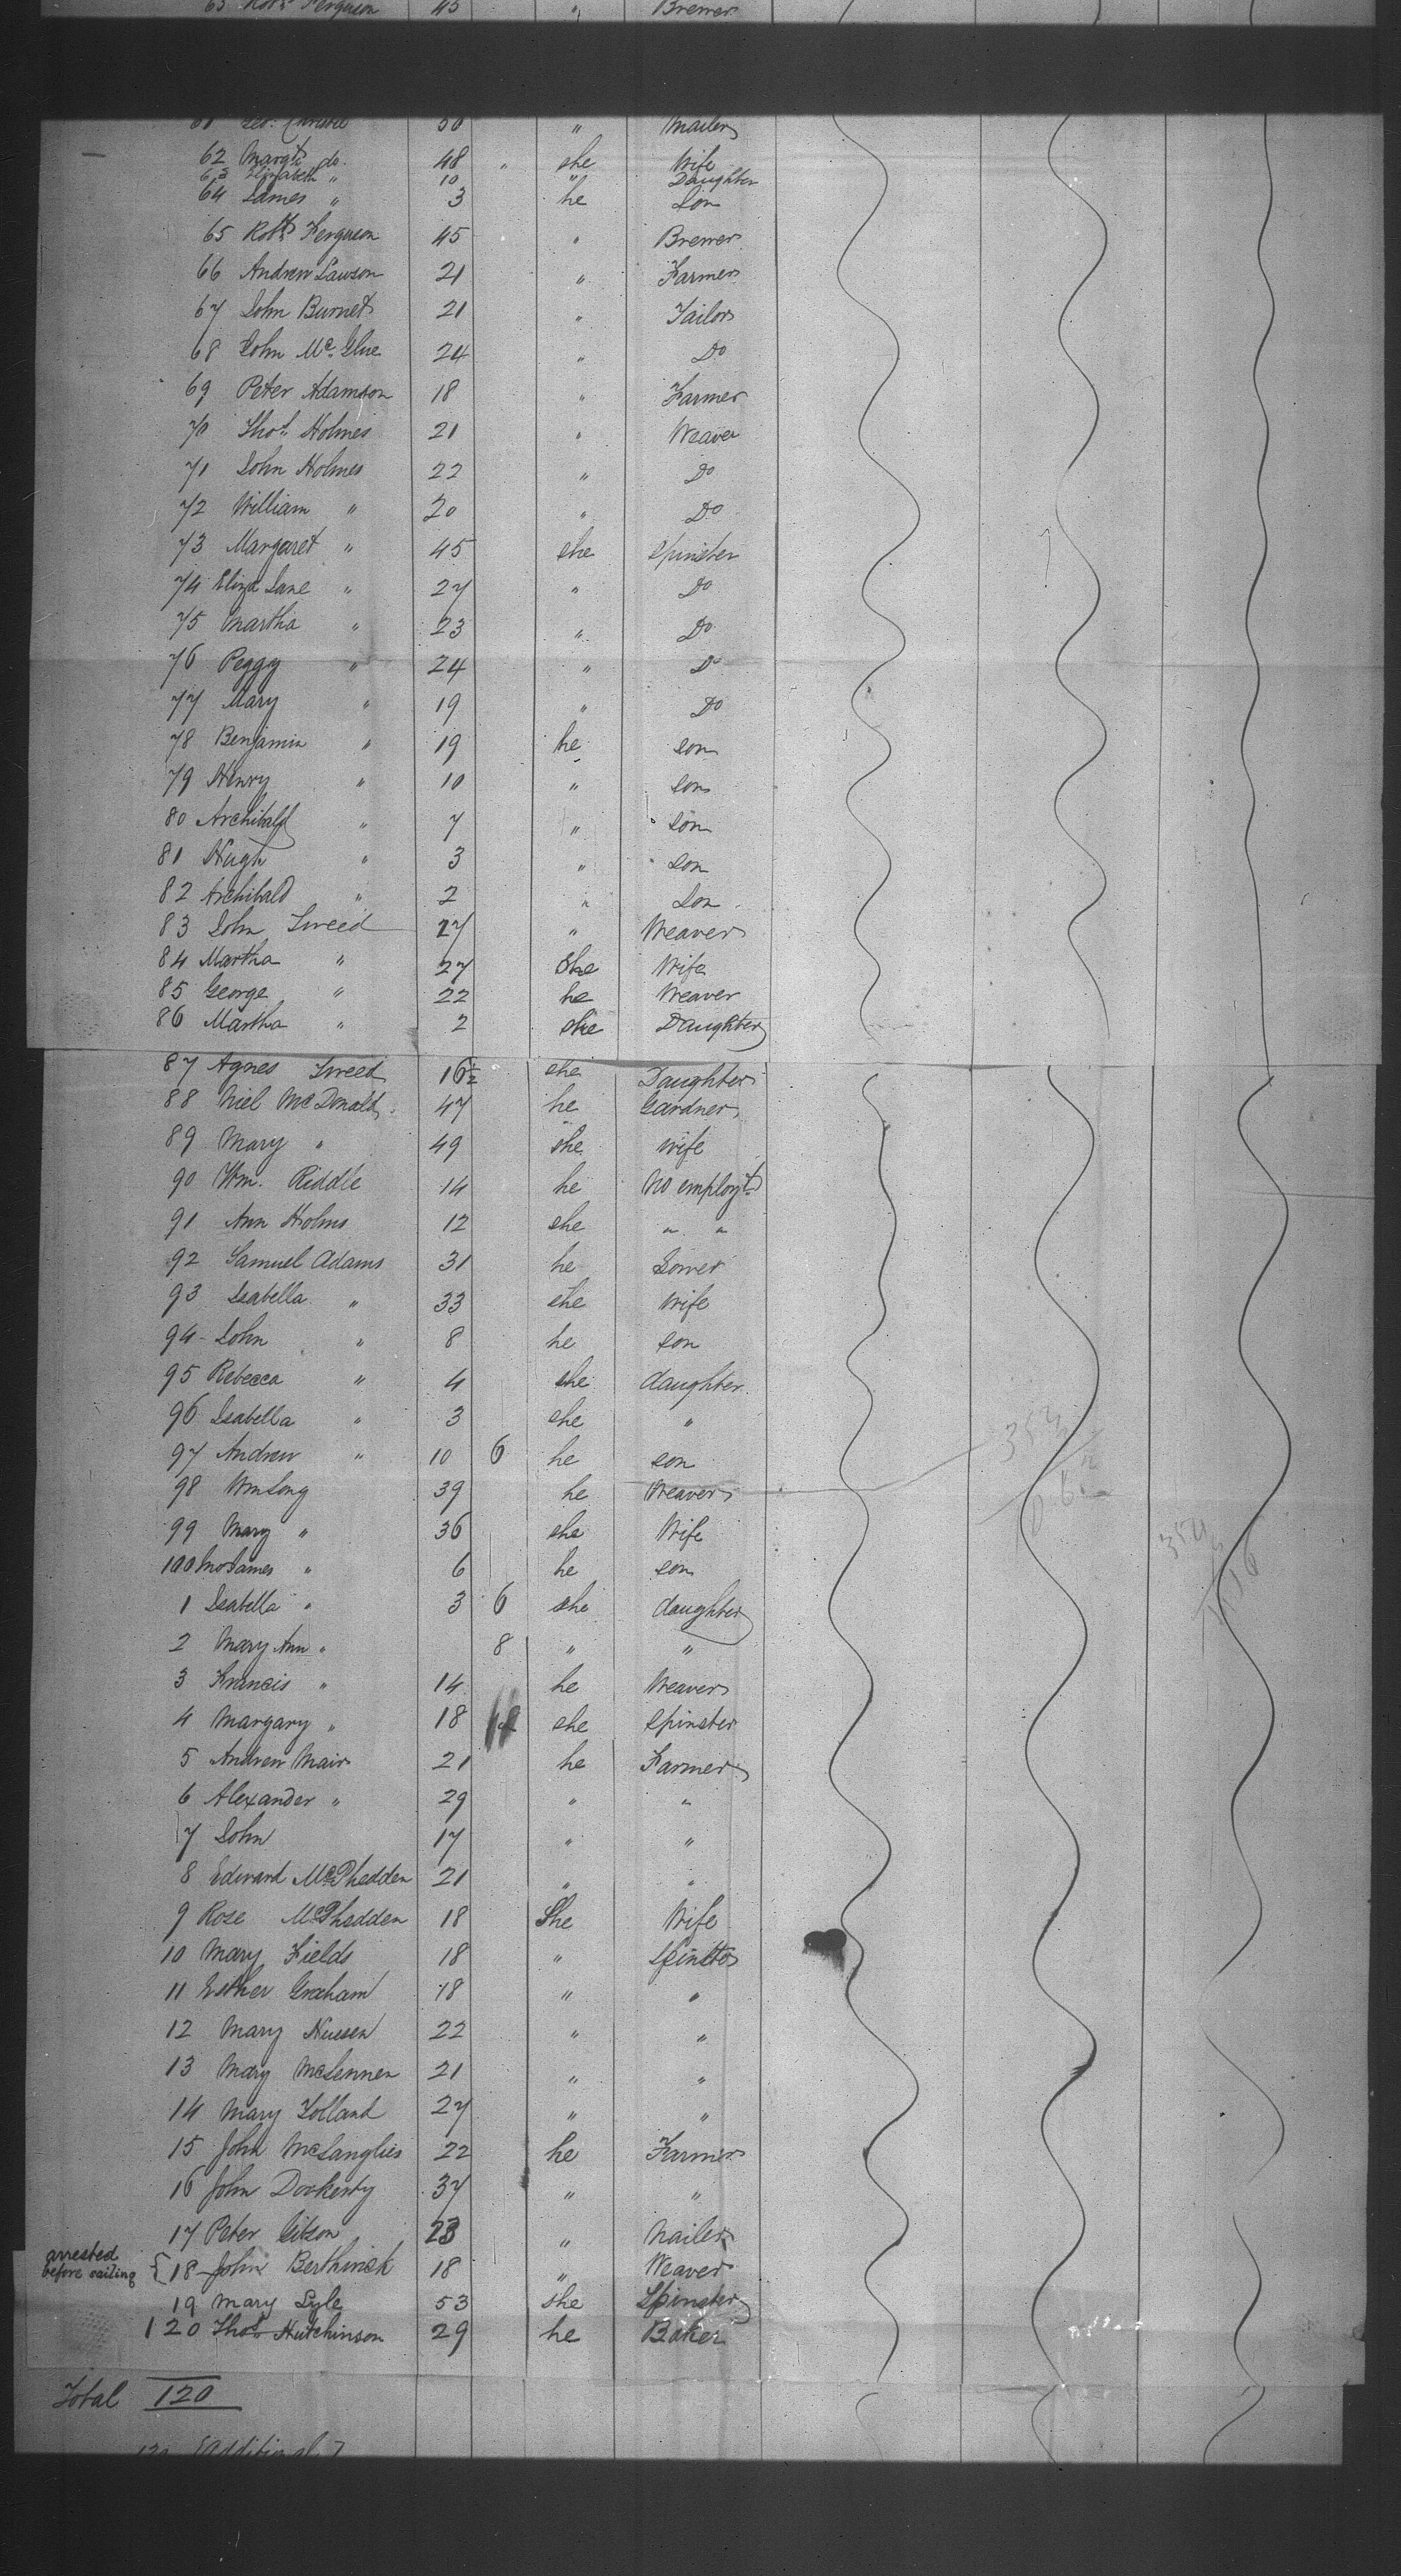 65 Robt. Ferguson 45 " Brewer
61 Geo. Christie 50 " Nailer
62 Margt. do. 48 " she Wife
63 Elizabeth " 10 " Daughter
64 James " 3 he Son
65 Robt. Ferguson 45 " Brewer
66 Andrew Lawson 21 " Farmer
67 John Burnet 21 " Tailor
68 John Mc. Glue 24 " Do
69 Peter Adamson 18 " Farmer
70 Thos. Holmes 21 " Weaver
71 John Holmes 22 " Do
72 William " 20 " Do
73 Margaret " 45 she spinster
74 Eliza Jane " 27 " Do
75 Martha " 23 " Do
76 Peggy " 24 " Do
77 Mary " 19 " Do
78 Benjamin " 19 he son
79 Henry " 10 " son
80 Archibald " 7 " son
81 Hugh " 3 " son
82 Archibald " 2 " Son
83 John Tweed 27 " Weaver
84 Martha " 27 She Wife
85 George " 22 he Weaver
86 Martha " 2 she Daughter
87 Agnes Tweed she Daughter
88 Niel McDonald 47 he Gardner
89 Mary " 49 she wife
90 Wm. Riddle 14 he No employt
91 Ann Holms 12 she " "
92 Samuel Adams 31 he Sower
93 Isabella " 33 she Wife
94 John " 8 he son
95 Rebecca " 4 she daughter
96 Isabella " 3 she "
97 Andrew " 10 6 he son
98 Wm Long 39 he Weaver
99 Mary " 36 she Wife
100 James " 6 he son
1 Isabella " 3 6 she daughter
2 Mary Ann " 8 " "
3 Francis " 14 he Weaver
4 Margary " 18 she spinster
5 Andrew Mair 21 he Farmer
6 Alexander " 29 " "
7 John 17 " "
8 Edward McPhedden 21 " "
9 Rose McPhedden 18 She Wife
10 Mary Fields 18 " Spinster
11 Esther Graham 18 " "
12 Mary 22 " "
13 Mary McLennen 21 " "
14 Mary Tolland 27 " "
15 John 22 he Farmer
16 John Dockerty 37 " "
17 Peter Gibson 23 " Nailer
arrested before sailing { 18 John Berthinck 18 " Weaver
19 Mary Lyle 53 she Spinster
120 Thos. Hutchinson 29 he Baker
Total 120
[additional]